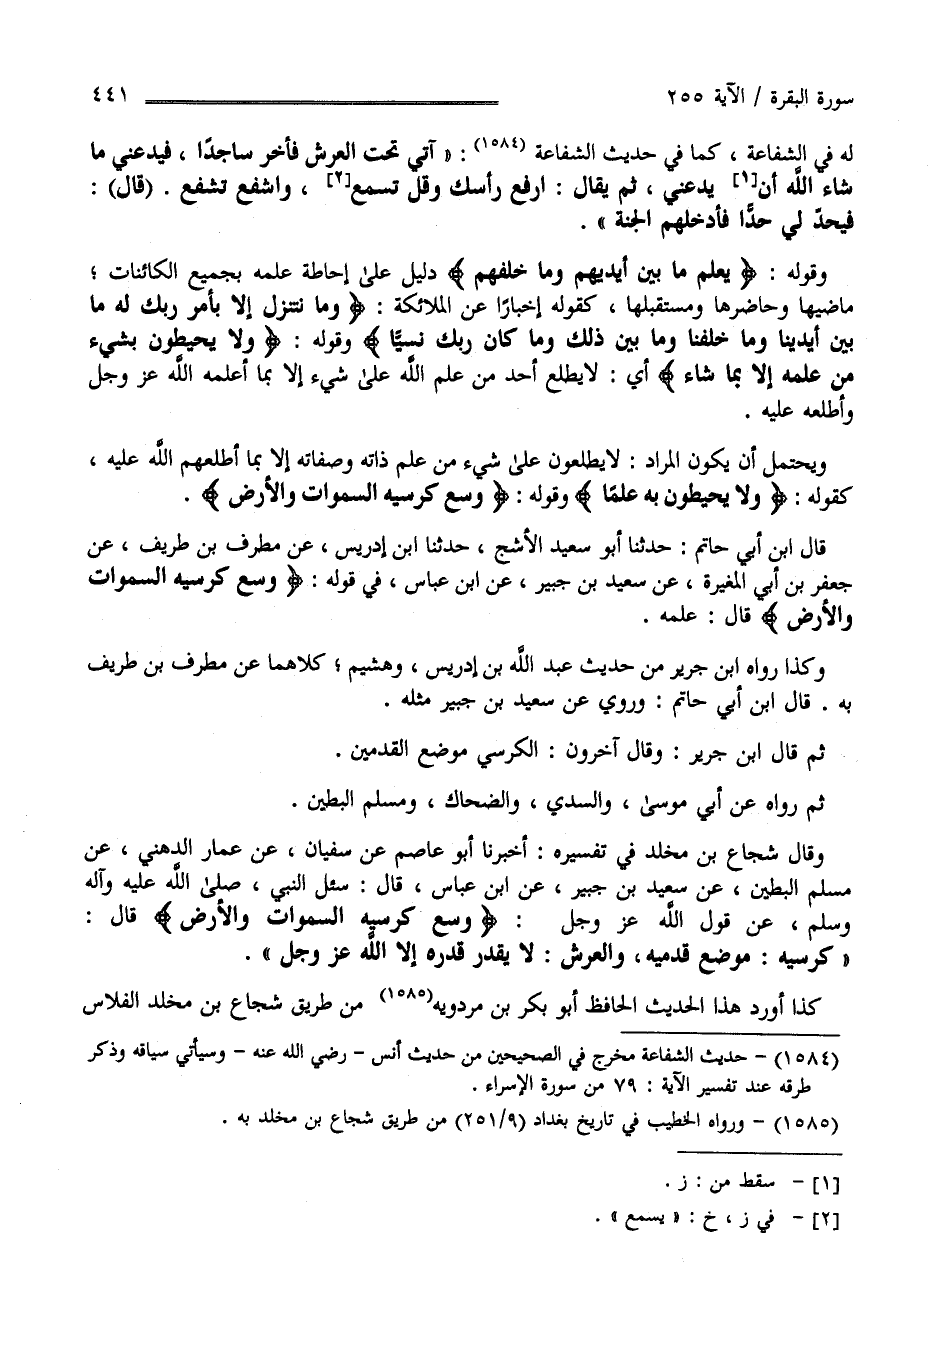 سورة البقرة / الآية ٢٥٥ ٤٤١
له في الشفاعة ، كما في حديث الشفاعة (١٥٨٤) : « آتي تحت العرش فأخر ساجدًا ، فيدعني ما
شاء اللَّه أن[١] يدعني ، ثم يقال : ارفع رأسك وقل تسمع[٢] ، واشفع تشفع . (قال) :
فيحدّ لي حدًّا فأدخلهم الجنة » .
وقوله : ﴿ يعلم ما بين أيديهم وما خلفهم ﴾ دليل على إحاطة علمه بجميع الكائنات ؛
ماضيها وحاضرها ومستقبلها ، كقوله إخبارًا عن الملائكة : ﴿ وما نتنزل إلا بأمر ربك له ما
بين أيدينا وما خلفنا وما بين ذلك وما كان ربك نسيًّا ﴾ وقوله : ﴿ ولا يحيطون بشيء
من علمه إلا بما شاء ﴾ أي : لايطلع أحد من علم اللَّه على شيء إلا بما أعلمه اللَّه عز وجل
وأطلعه عليه .
ويحتمل أن يكون المراد : لايطلعون على شيء من علم ذاته وصفاته إلا بما أطلعهم اللَّه عليه ،
كقوله : ﴿ ولا يحيطون به علمًا ﴾ وقوله : ﴿ وسع كرسيه السموات والأرض ﴾ .
قال ابن أبي حاتم : حدثنا أبو سعيد الأشج ، حدثنا ابن إدريس ، عن مطرف بن طريف ، عن
جعفر بن أبي المغيرة ، عن سعيد بن جبير ، عن ابن عباس ، في قوله : ﴿ وسع كرسيه السموات
والأرض ﴾ قال : علمه .
وكذا رواه ابن جرير من حديث عبد اللَّه بن إدريس ، وهشيم ؛ كلاهما عن مطرف بن طريف
به . قال ابن أبي حاتم : وروي عن سعيد بن جبير مثله .
ثم قال ابن جرير : وقال آخرون : الكرسي موضع القدمين .
ثم رواه عن أبي موسى ، والسدي ، والضحاك ، ومسلم البطين .
وقال شجاع بن مخلد في تفسيره : أخبرنا أبو عاصم عن سفيان ، عن عمار الدهني ، عن
مسلم البطين ، عن سعيد بن جبير ، عن ابن عباس ، قال : سئل النبي ، صلى اللَّه عليه وآله
وسلم ، عن قول اللَّه عز وجل : ﴿ وسع كرسيه السموات والأرض ﴾ قال :
« كرسيه : موضع قدميه ، والعرش : لا يقدر قدره إلا اللَّه عز وجل » .
كذا أورد هذا الحديث الحافظ أبو بكر بن مردويه(١٥٨٥) من طريق شجاع بن مخلد الفلاس
(١٥٨٤) – حديث الشفاعة مخرج في الصحيحين من حديث أنس – رضي الله عنه – وسيأتي سياقه وذكر
طرقه عند تفسير الآية : ٧٩ من سورة الإسراء .
(١٥٨٥) – ورواه الخطيب في تاريخ بغداد (٢٥١/٩) من طريق شجاع بن مخلد به .
[١] – سقط من : ز .
[٢] – في ز ، خ : « يسمع » .